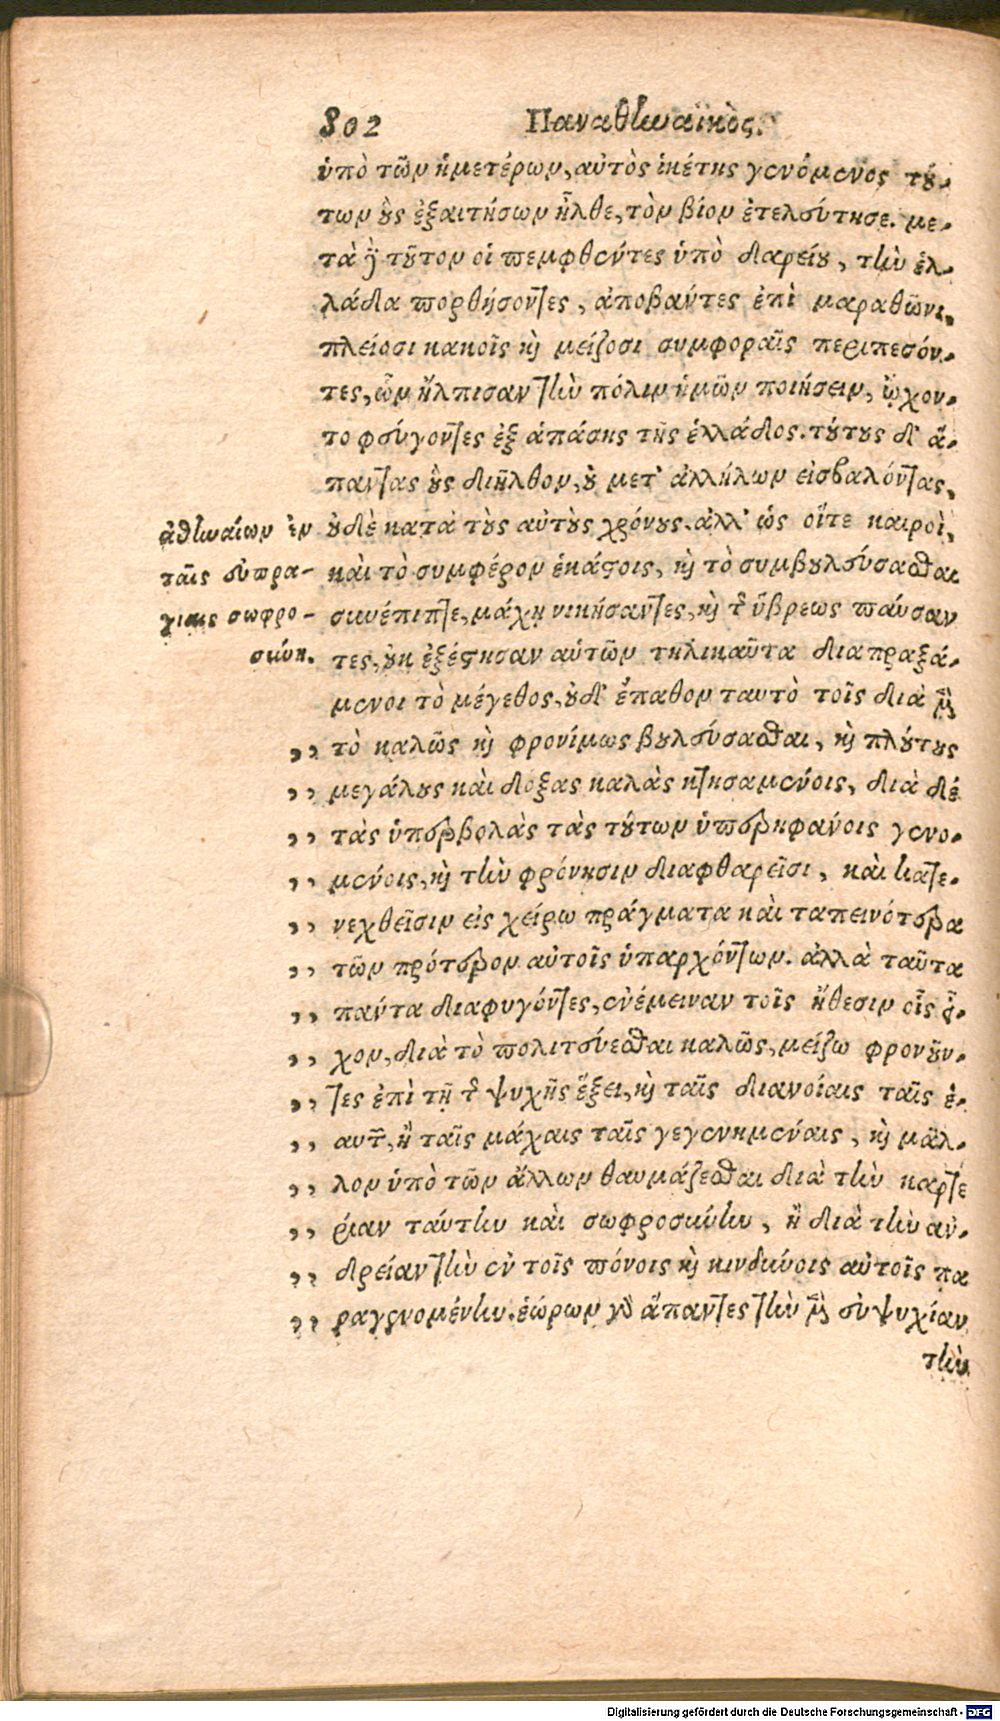 302
Παναθηναϊκὸς.
ὑπὸ τῶν ἡμετέρων, αὐτὸς ἱκέτης γενόμενος τού-
των οὓς ἐξαιτήσων ἦλθε, τὸν βίον ἐτελεύτησε. με-
τὰ δὲ τοῦτον οἱ πεμφθέντες ὑπὸ δαρείου, τὴν ἑλ-
λάδα πορθήσοντες, ἀποβάντες ἐπὶ μαραθῶνι,
πλείοσι κακοῖς καὶ μείζοσι συμφοραῖς περιπεσόν-
τες, ὧν ἤλπισαν τὴν πόλιν ἡμῶν ποιήσειν, ᾤχον-
το φεύγοντες ἐξ ἁπάσης τῆς ἑλλάδος. τούτους δ' ἅ-
παντας οὓς διῆλθον, οὐ μετ' ἀλλήλων εἰσβαλόντας,
οὐδὲ κατὰ τοὺς αὐτοὺς χρόνους. ἀλλ' ὡς οἵτε καιροὶ,
καὶ τὸ συμφέρον ἑκάστοις, καὶ τὸ συμβουλεύσασθαι
συνέπιπτε, μάχῃ νικήσαντες, καὶ τῆς ὕβρεως παύσαν
τες, οὐκ ἐξέστησαν αὑτῶν τηλικαῦτα διαπραξά-
μενοι τὸ μέγεθος, οὐδ' ἔπαθον ταυτὸ τοῖς διὰ μὲν
ἀθηναίων ἐν
ταῖς εὐπρα-
γίαις σωφρο-
σύνη.
,, τὸ καλῶς καὶ φρονίμως βουλεύσασθαι, καὶ πλούτους
,, μεγάλους καὶ δοξας καλὰς κτησαμένοις, διὰ δέ
,, τὰς ὑπερβολὰς τὰς τούτων ὑπερηφάνοις γενο-
,, μένοις, καὶ τὴν φρόνησιν διαφθαρεῖσι, καὶ κατε-
,, νεχθεῖσιν εἰς χείρω πράγματα καὶ ταπεινότερα
,, τῶν πρότερον αὐτοῖς ὑπαρχόντων. ἀλλὰ ταῦτα
,, πάντα διαφυγόντες, ἐνέμειναν τοῖς ἤθεσιν οἷς εἶ-
,, χον, διὰ τὸ πολιτεύεσθαι καλῶς, μείζω φρονοῦν-
,, τες ἐπὶ τῇ τῆς ψυχῆς ἕξει, καὶ ταῖς διανοίαις ταῖς ἑ-
,, αυτῶν, ἢ ταῖς μάχαις ταῖς γεγενημέναις, καὶ μᾶλ-
,, λον ὑπὸ τῶν ἄλλων θαυμάζεσθαι διὰ τὴν καρτε
,, ρίαν ταύτην καὶ σωφροσύνην, ἢ διὰ τὴν ἀν-
,, δρείαν τὴν ἐν τοῖς πόνοις καὶ κινδύνοις αὐτοῖς πα
,, ραγενομένην. ἑώρων γὰρ ἅπαντες τὴν μὲν εὐψυχίαν
τὴν
Digitalisierung gefördert durch die Deutsche Forschungsgemeinschaft - DFG